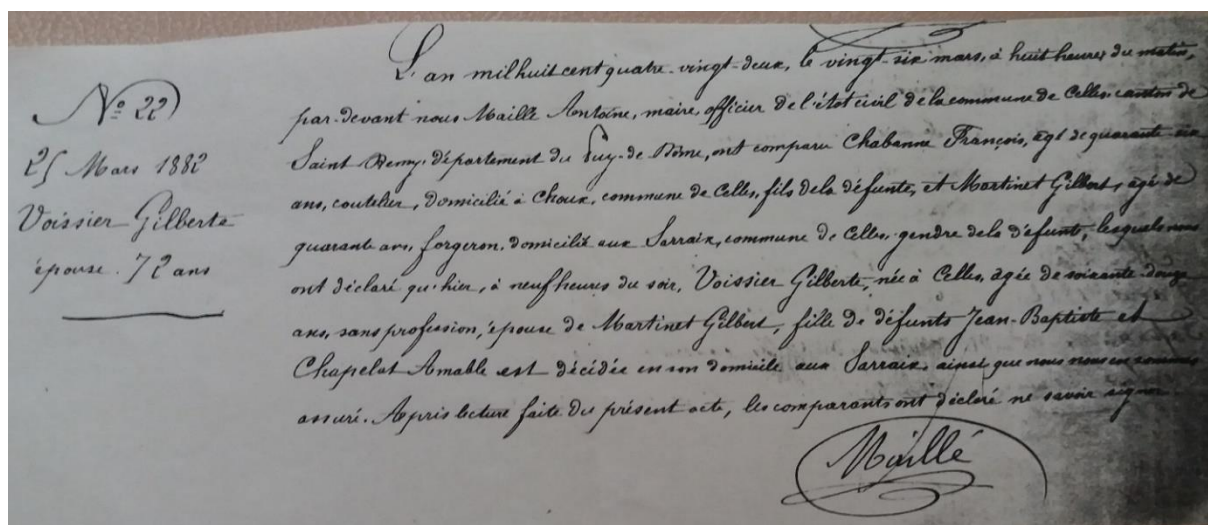 N° 22
25 Mars 1882
Voissier Gilberte
épouse. 72 ans
L'an mil huit cent quatre-vingt-deux, le vingt-six mars, à huit heures du matin,
par-devant nous Maillé Antoine, maire, officier de l'état civil de la commune de Celles, canton de
Saint Remy, département du Puy-de-Dôme, ont comparu Chabanne François, agé de quarante-six
ans, coutelier, domicilié à Choux, commune de Celles, fils de la défunte, et Martinet Gilbert, agé de
quarante ans, forgeron, domicilié aux Sarraix, commune de Celles, gendre de la défunte, lesquels nous
ont déclaré qu'hier, à neuf heures du soir, Voissier Gilberte, née à Celles, agée de soixante-douze
ans, sans profession, épouse de Martinet Gilbert, fille de défunts Jean-Baptiste et
Chapelat Amable est décédée en son domicile aux Sarraix, ainsi que nous nous en sommes
assuré. Après lecture faite du présent acte, les comparants ont déclaré ne savoir signer.
Maillé